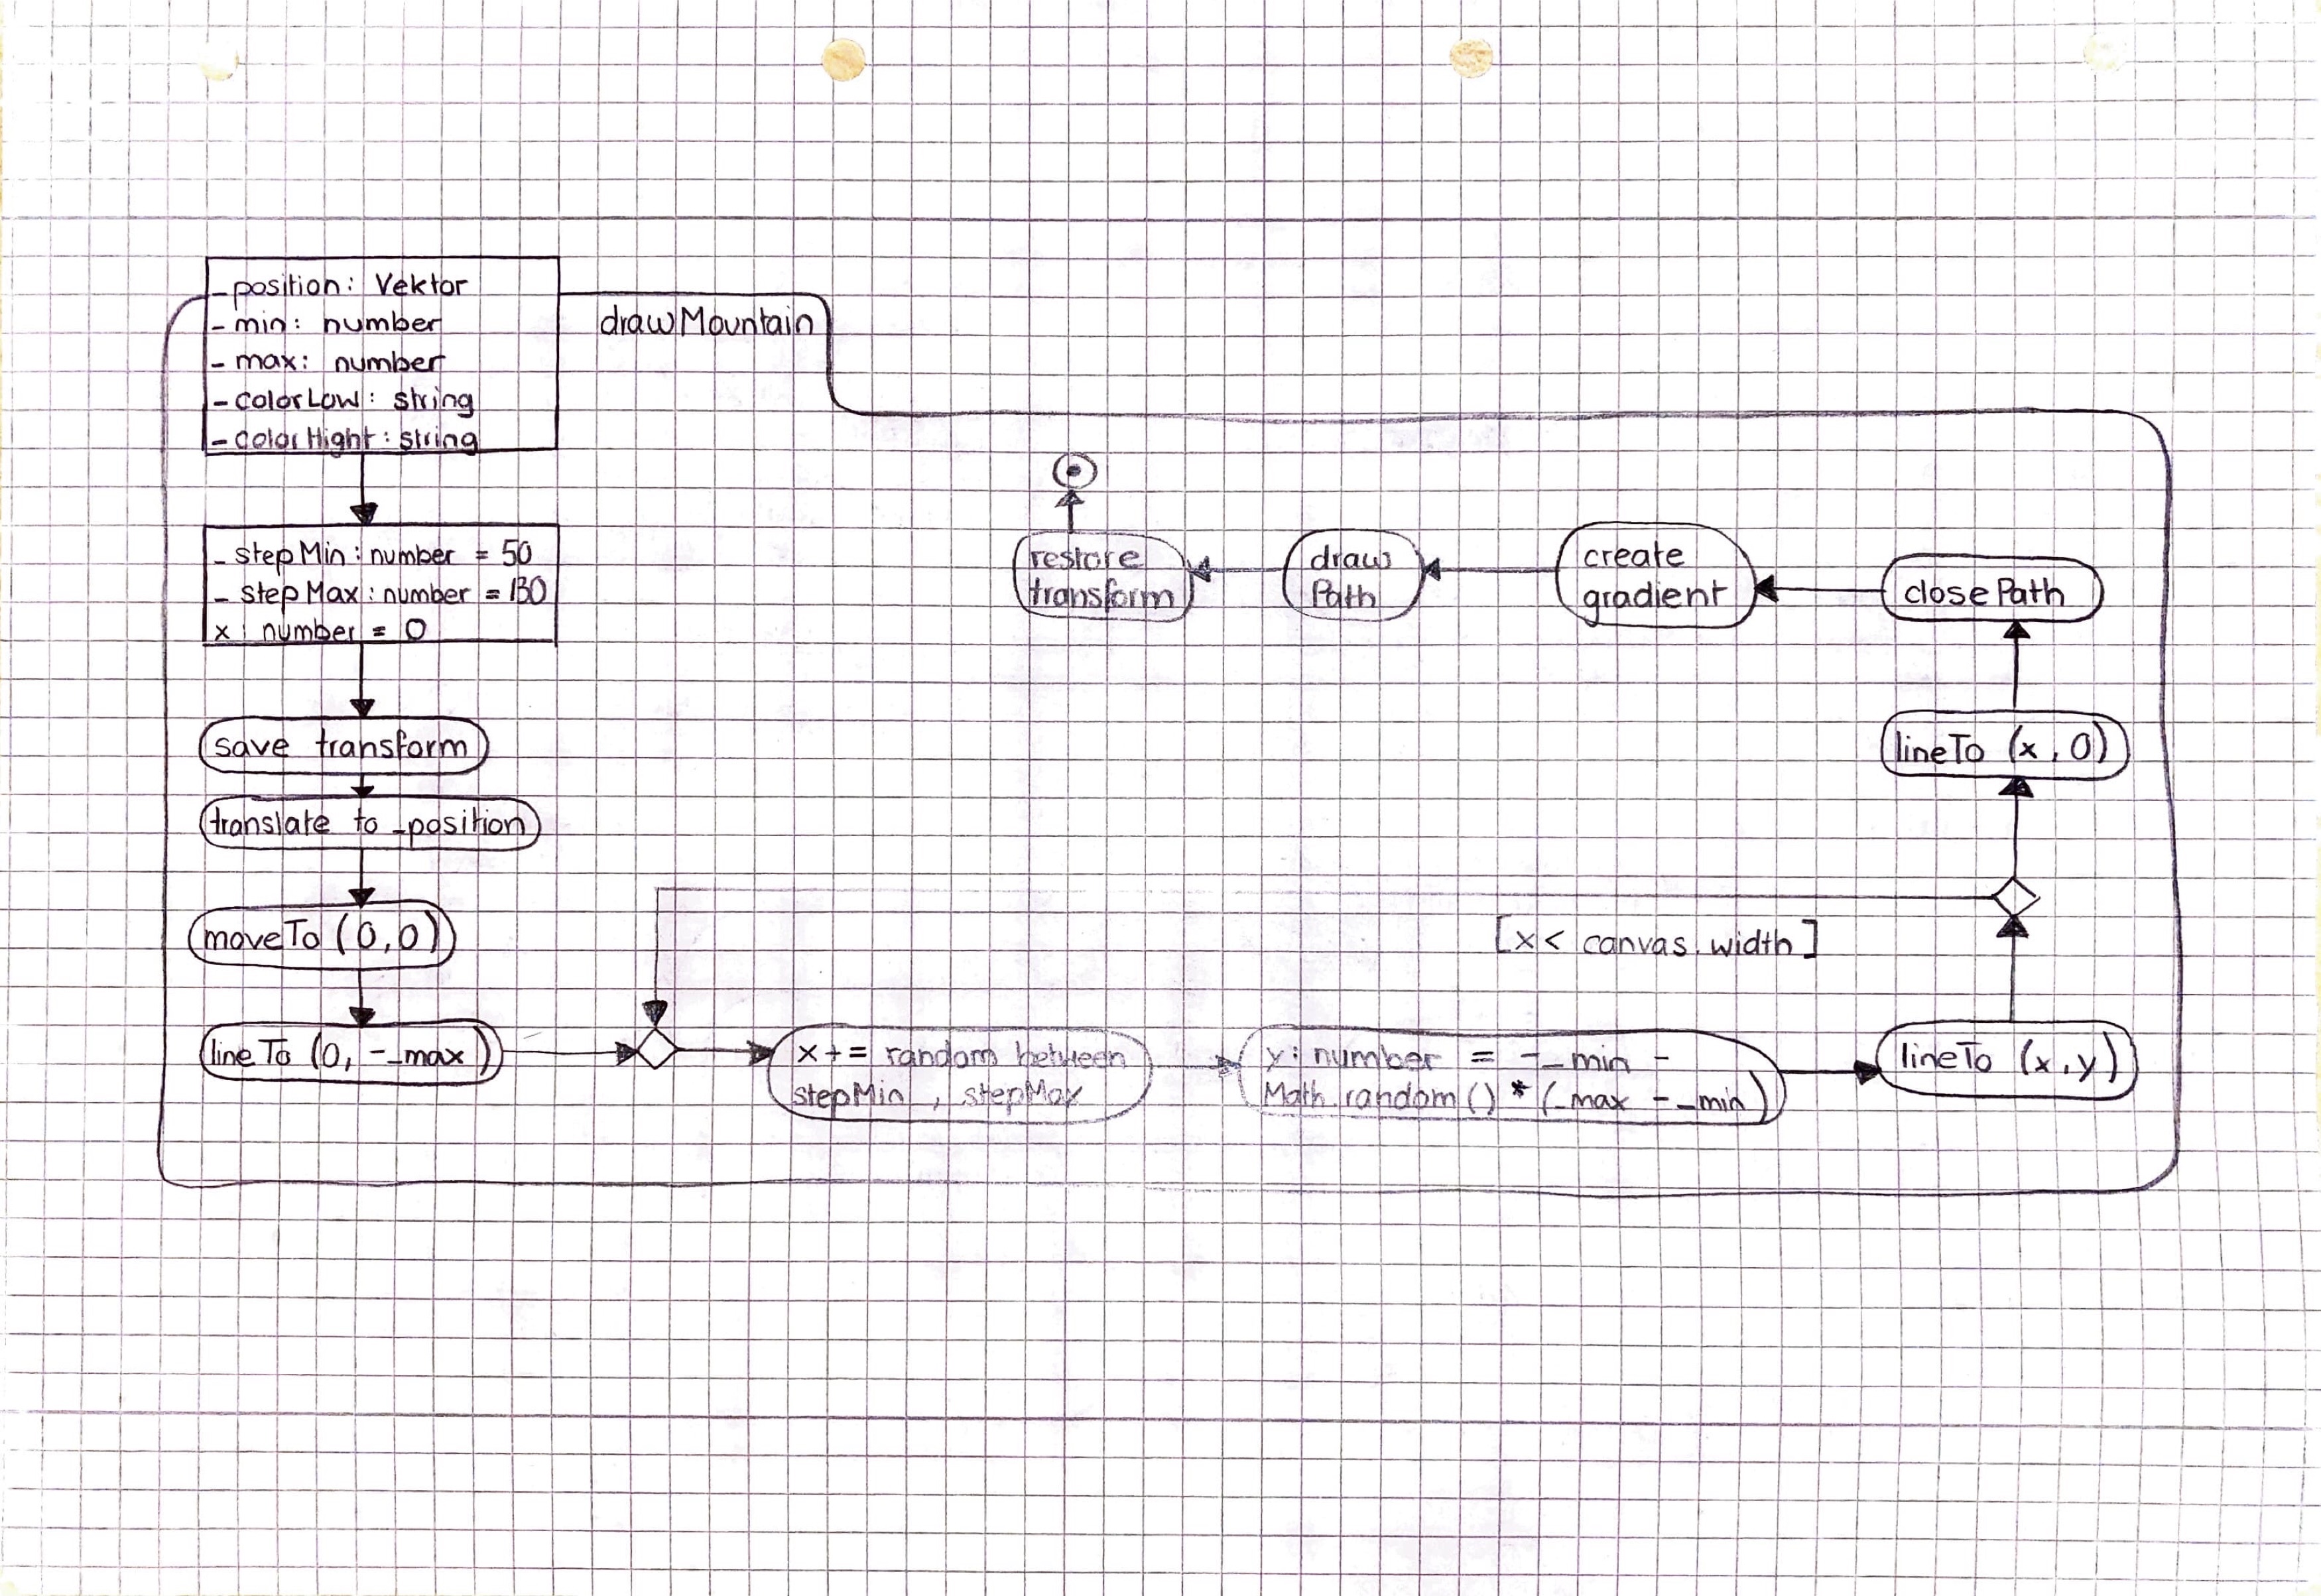 _position: Vektor
_ min: number
_ max: number
_ colorLow: string
_ colorHight: string
drawMountain
_ stepMin: number = 50
_ stepMax: number = 130
x: number = 0
save transform
translate to _position
moveTo (0,0)
lineTo (0, -_max)
x += random between
stepMin , stepMax
y: number = -_min -
Math.random() * (_max - _min)
lineTo (x,y)
[x < canvas.width]
lineTo (x, 0)
closePath
create
gradient
draw
Path
restore
transform